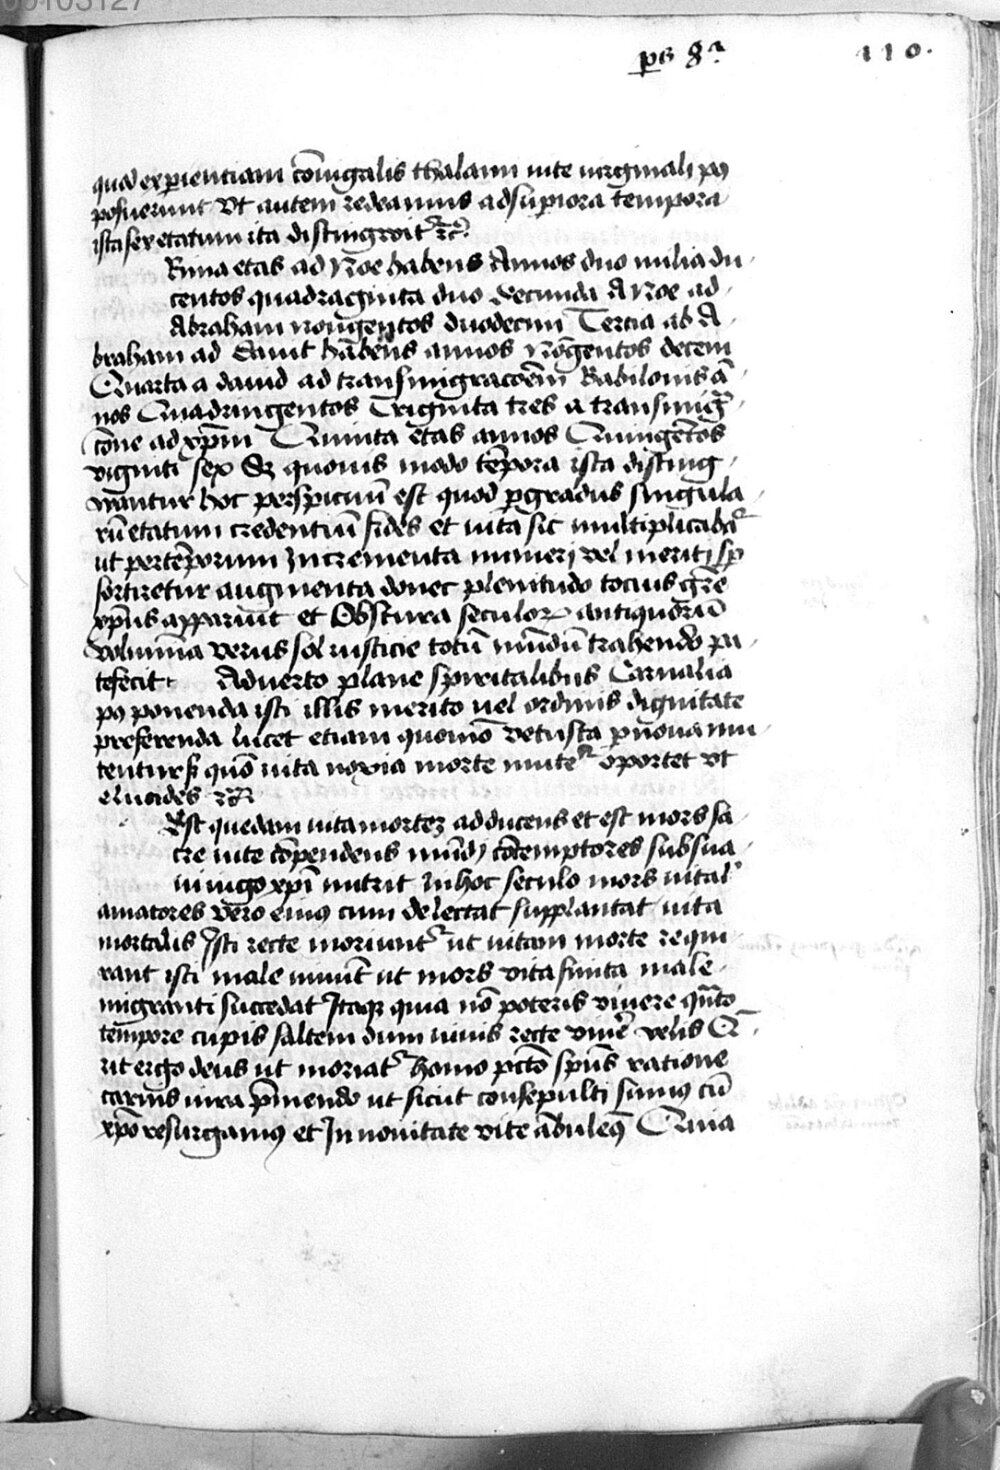 00103127
ps 8ª 110.
quod experientiam cōiugalis thalami uite uirginali pꝰ
posuerunt Vt autem redeamus ad superiora tempora
ista sex etatum ita distingwit
Rima etas ad Noe habens Annos duo milia du
centos quadraginta duo Secunda A Noe ad
Abraham nongentos duodecim Tercia ab A
braham ad Dauit hābens annos Nōgentos decem
Quarta a dauid ad transmigracōem Babilonis ā
nos Quadringentos Triginta tres a transmigra
cōne ad xp̄m Quinta etas annos Quingētos
viginti sex Sz quouis modo tēpora ista disting
wantur hoc perspicuū est quod p gradus singula
rū etatum credentiū fides et uita sic multiplicabaᷣ
ut per tēporum Incrementa numeri vel meriti sp
sortiretur augmenta donec plenitudo tocius grē
xp̄us apparuit et Obscura seculoꝝ antiquorū
volumīa verus sol iusticie totū mūdū trahendo pa
tefecit Aduerto plane spiritalibus Carnalia
pꝰ ponenda isti illis merito uel ordinis dignitate
preferenda lucet etiam quomō vetusta p noua mu
tentur quō uita noxia morte muteᷣ oportet vt
elucides
Est quedam uita mortez adducens et est mors sa
cre uite cōpendens mūdi cōtemptores sub sua
ui iugo xp̄i nutrit In hoc seculo mors uital
amatores vero eiuꝰ cum delectat supplantat uita
mortalis Isti recte moriuntᷣ ut uitam morte requi
rant isti male uiuūt ut mors vita finita male
migranti succedat Itaqꝫ quia nō poteris viuere qn̄to
tempore cupis saltem dum uiuis recte viuē velis Q
rit ergo deus ut moriatᷣ homo pctō sp̄us ratione
carnis iura p̄mendo ut sicut consepulti sumꝰ cū
xp̄o resurgamꝰ et In nouitate vite ābuleꝰ Quia